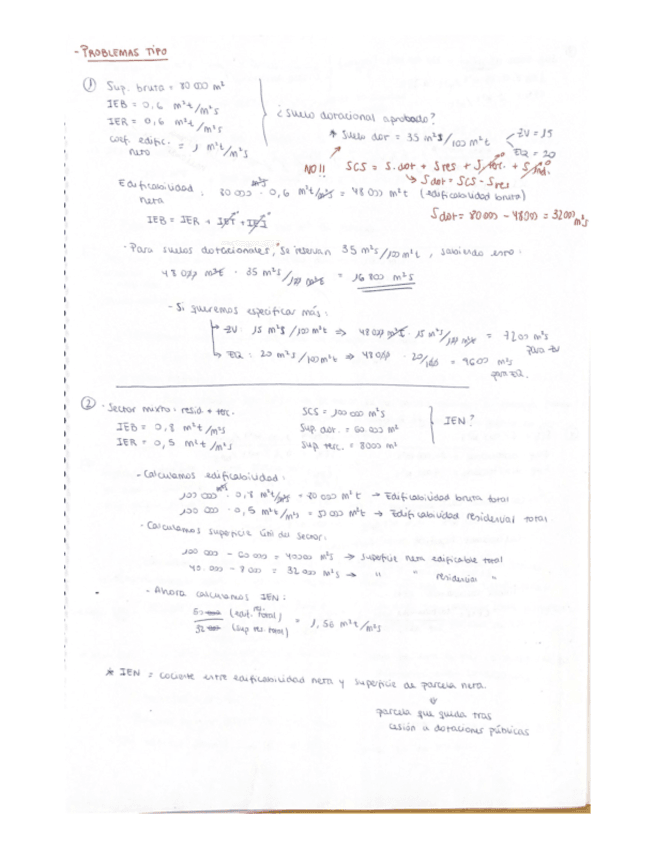 - PROBLEMAS TIPO
① Sup. bruta = 80 000 m²
IEB = 0,6 m²t/m²s
IER = 0,6 m²t/m²s
coef. edific. neto = 1 m²t/m²s
¿Suelo dotacional aprobado?
* Suelo dot = 35 m²s/100 m²t
ZV = 15
EQ = 20
NO!! SCS = S.dot + Sres + S.terc. + S.ind.
↳ Sdot = SCS - Sres
Edificabilidad neta : 80 000 m²s · 0,6 m²t/m²s = 48 000 m²t (edificabilidad bruta)
IEB = IER + IET + IEI
Sdot = 80 000 - 48000 = 32000 m²s
- Para suelos dotacionales, se reservan 35 m²s/100 m²t, sabiendo esto:
48 000 m²t · 35 m²s/100 m²t = 16 800 m²s
- Si queremos especificar más:
ZV : 15 m²s/100 m²t ⇒ 48 000 m²t · 15 m²s/100 m²t = 7200 m²s para ZV
↳ EQ : 20 m²s/100 m²t ⇒ 48 000 · 20/100 = 9600 m²s para EQ.
② · Sector mixto: resid + terc.
IEB = 0,8 m²t/m²s
IER = 0,5 m²t/m²s
SCS = 100 000 m²s
Sup. dot. = 60 000 m²
Sup terc. = 8000 m²
IEN?
- Calculamos edificabilidad:
100 000 m²s · 0,8 m²t/m²s = 80 000 m²t → Edificabilidad bruta total
100 000 · 0,5 m²t/m²s = 50 000 m²t → Edificabilidad residencial total
- Calculamos superficie útil del sector:
100 000 - 60 000 = 40000 m²s → superficie neta edificable total
40.000 - 8 000 = 32 000 m²s → " " residencial "
- Ahora calculamos IEN:
50 000 (edif. res. total)
32 000 (sup res. total)
= 1,56 m²t/m²s
* IEN = cociente entre edificabilidad neta y superficie de parcela neta.
⇓
parcela que queda tras
cesión a dotaciones públicas